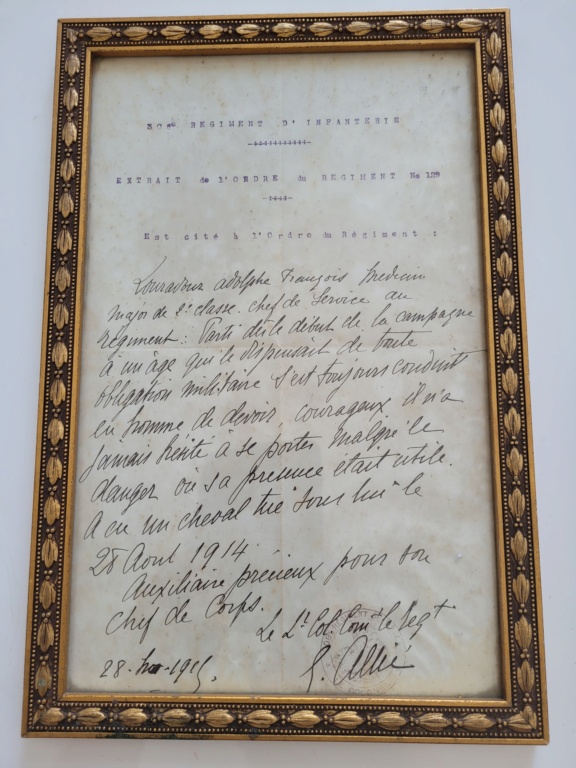 REGIMENT D'INFANTERIE
EXTRAIT de l'ORDRE du REGIMENT No
Est cité à l'Ordre du Régiment :
adolphe François Medecin
major de 2e classe. chef de Service au
régiment : Parti dès le début de la campagne
à un âge qui le dispensait de toute
obligation militaire s'est toujours conduit
en homme de devoir, courageux, il n'a
jamais hésité à se porter malgré le
danger où sa présence était utile.
A eu un cheval tué sous lui le
28 Aout 1914.
Auxiliaire précieux pour son
chef de Corps.
Le Lt. Col. Comt le Regt
28. 1915.